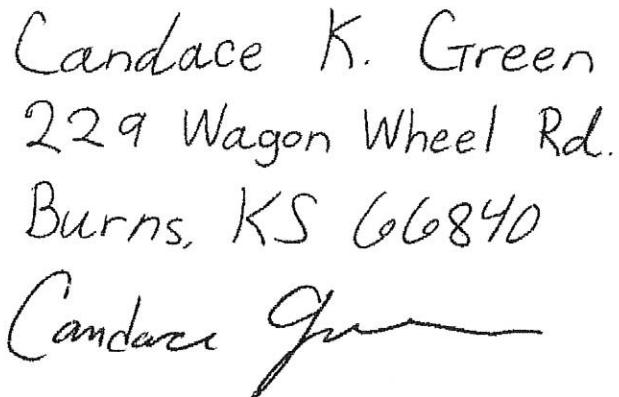 Candace K. Green
229 Wagon Wheel Rd.
Burns, KS 66840
Candace Green